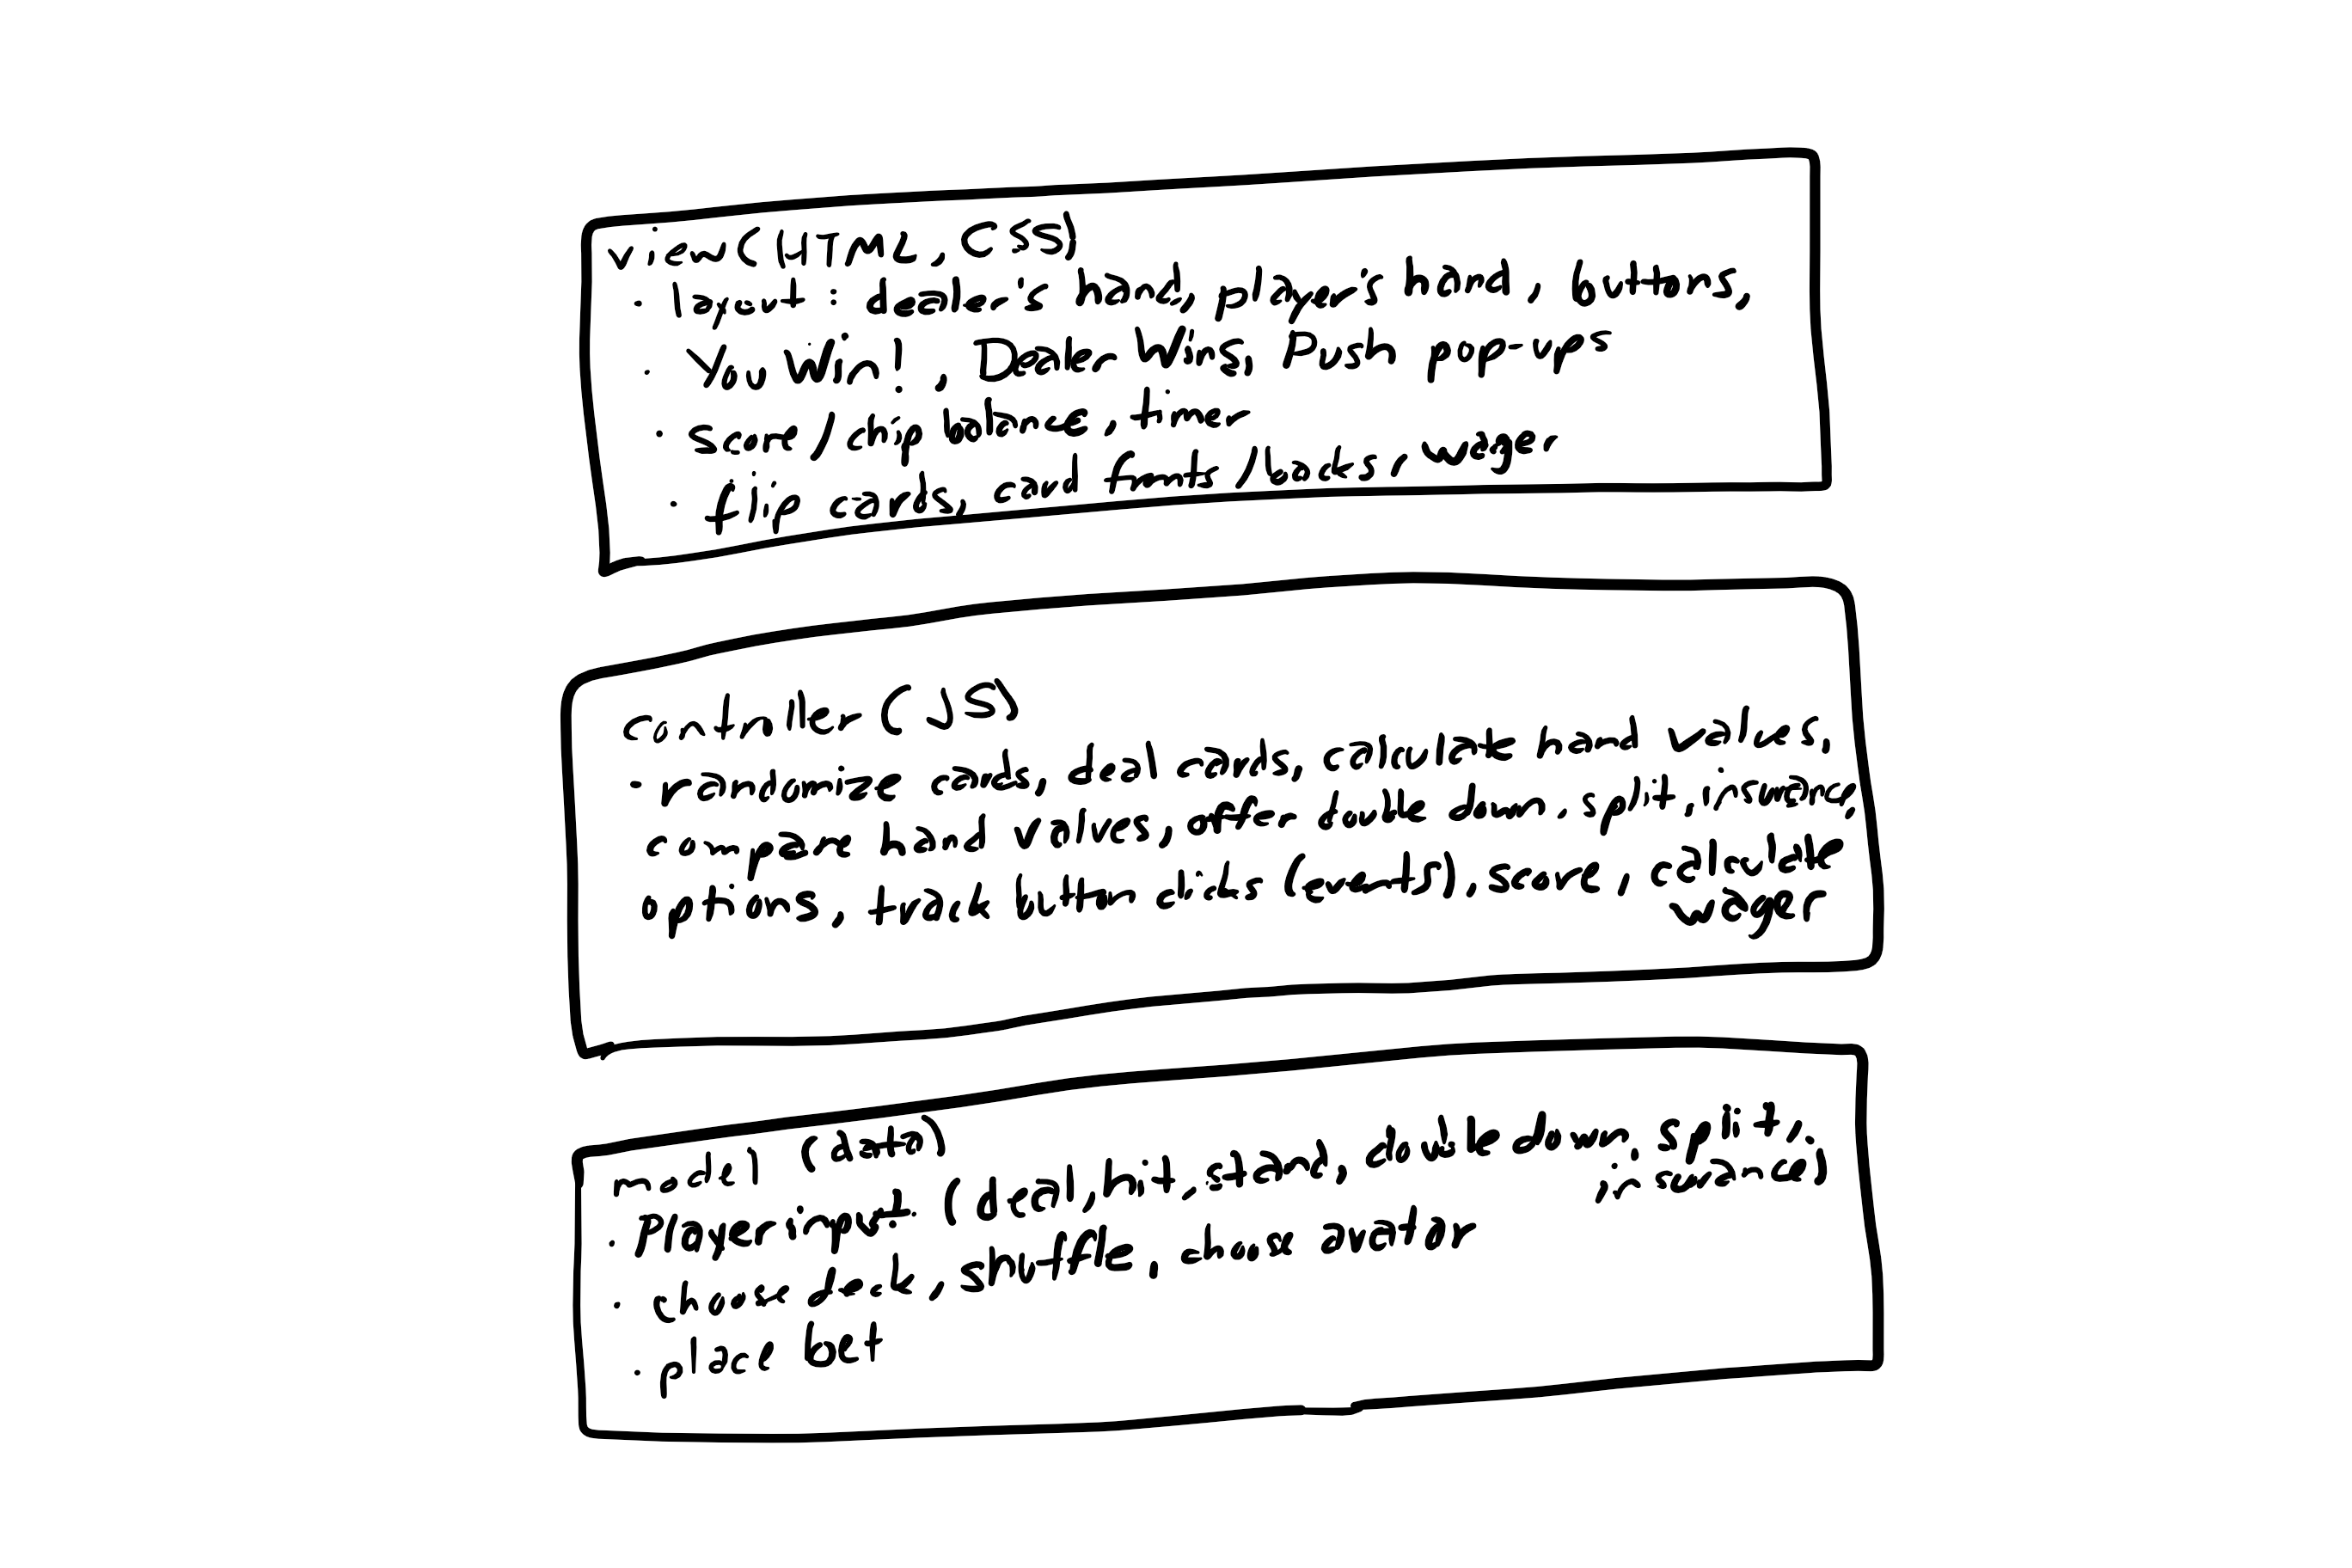 view (HTML, CSS)
· layout : dealer's hand, player's hand, buttons,
· You Win!, Dealer Wins, Push pop-ups
· score/chip balance, timer
· flip cards, card fronts/backs, wager
controller (JS)
· randomize cards, deal cards, calculate hand values,
compare hand values, offer double down, split, insurance
options, track button clicks (events), score, calculate
wager
model (data)
· Player input: (deal, hit, stand, double down, split,
insurance)
· choose deck, shuffle, choose avatar
· place bet